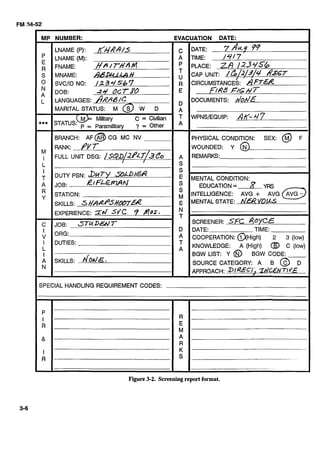 FM 34-52
MP NUMBER: EVACUATION DATE:
PERSONAL
LNAME (P): KHRAIS
LNAME (M):
FNAME: HAITHAM
MNAME: ABDULLAH
SVC/ID NO: 1234567
DOB: 24 OCT 80
LANGUAGES: ARABIC
MARITAL STATUS: M S W D
*** STATUS: M = Military C = Civilian
P = Paramilitary ? = Other
CAPTURE DATA
DATE: 7 Aug 99
TIME: 1417
PLACE: ZA 123456
CAP UNIT: 1/2/3/4 RDGT
CIRCUMSTANCES: AFTER
FIRE FIGHT
DOCUMENTS: NONE
WPNS/EQUIP: AK-47
MILITARY
BRANCH: AF AR CG MC NV
RANK: PVT
FULL UNIT DSG: 1SQD/2PLT/3Co
DUTY PSN: DUTY SOLDIER
JOB: RIFLEMAN
STATION:
SKILLS: SHARPSHOOTER
EXPERIENCE: IN SVC 9 Mos.
ASSESSMENT
PHYSICAL CONDITION: SEX: M F
WOUNDED: Y N
REMARKS:
MENTAL CONDITION:
EDUCATION = 8 YRS
INTELLIGENCE: AVG + AVG AVG -
MENTAL STATE: NERVOUS
CIVILIAN
JOB: STUDENT
ORG:
DUTIES:
SKILLS: NONE.
DATA
SCREENER: SFC ROYCE
DATE: TIME:
COOPERATION: 1(High) 2 3 (low)
KNOWLEDGE: A (High) B C (low)
BGW LIST: Y N BGW CODE:
SOURCE CATEGORY: A B C D
APPROACH: DIRECT, INCENTIVE
SPECIAL HANDLING REQUIREMENT CODES:
PIR & IR
REMARKS
Figure 3-2. Screening report format.
3-6